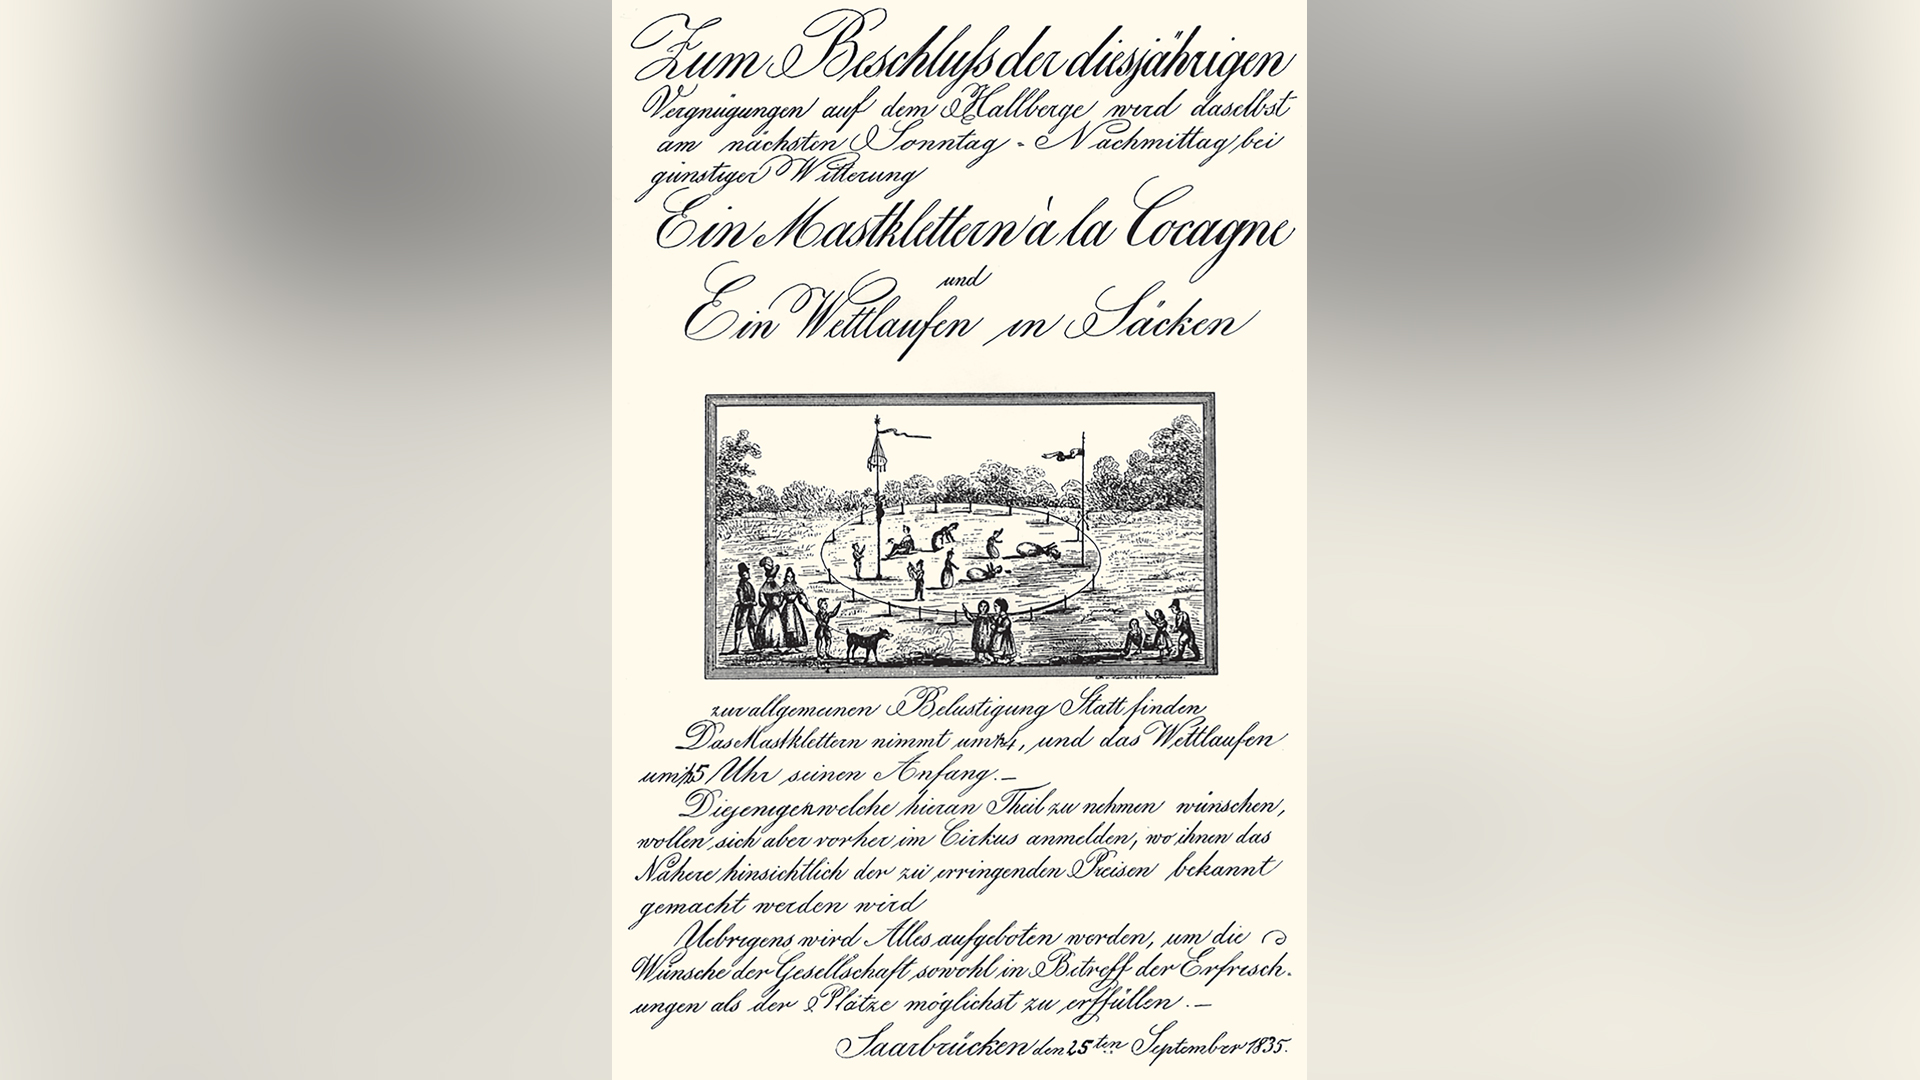 Zum Beschluſs der diesjährigen
Vergnügungen auf dem Hallberge wird daselbst
am nächsten Sonntag - Nachmittag bei
günstiger Witterung
Ein Mastklettern à la Cocagne
und
Ein Wettlaufen in Säcken
zur allgemeinen Belustigung Statt finden
Das Mastklettern nimmt um 4, und das Wettlaufen
um 5 Uhr seinen Anfang.—
Diejenigen welche hieran Theil zu nehmen wünschen,
wollen sich aber vorher im Cirkus anmelden, wo ihnen das
Nähere hinsichtlich der zu erringenden Preisen bekannt
gemacht werden wird
Uebrigens wird Alles aufgeboten werden, um die
Wünsche der Gesellschaft sowohl in Betreff der Erfrisch-
ungen als der Plätze möglichst zu erffüllen.—
Saarbrücken den 25ten September 1835.